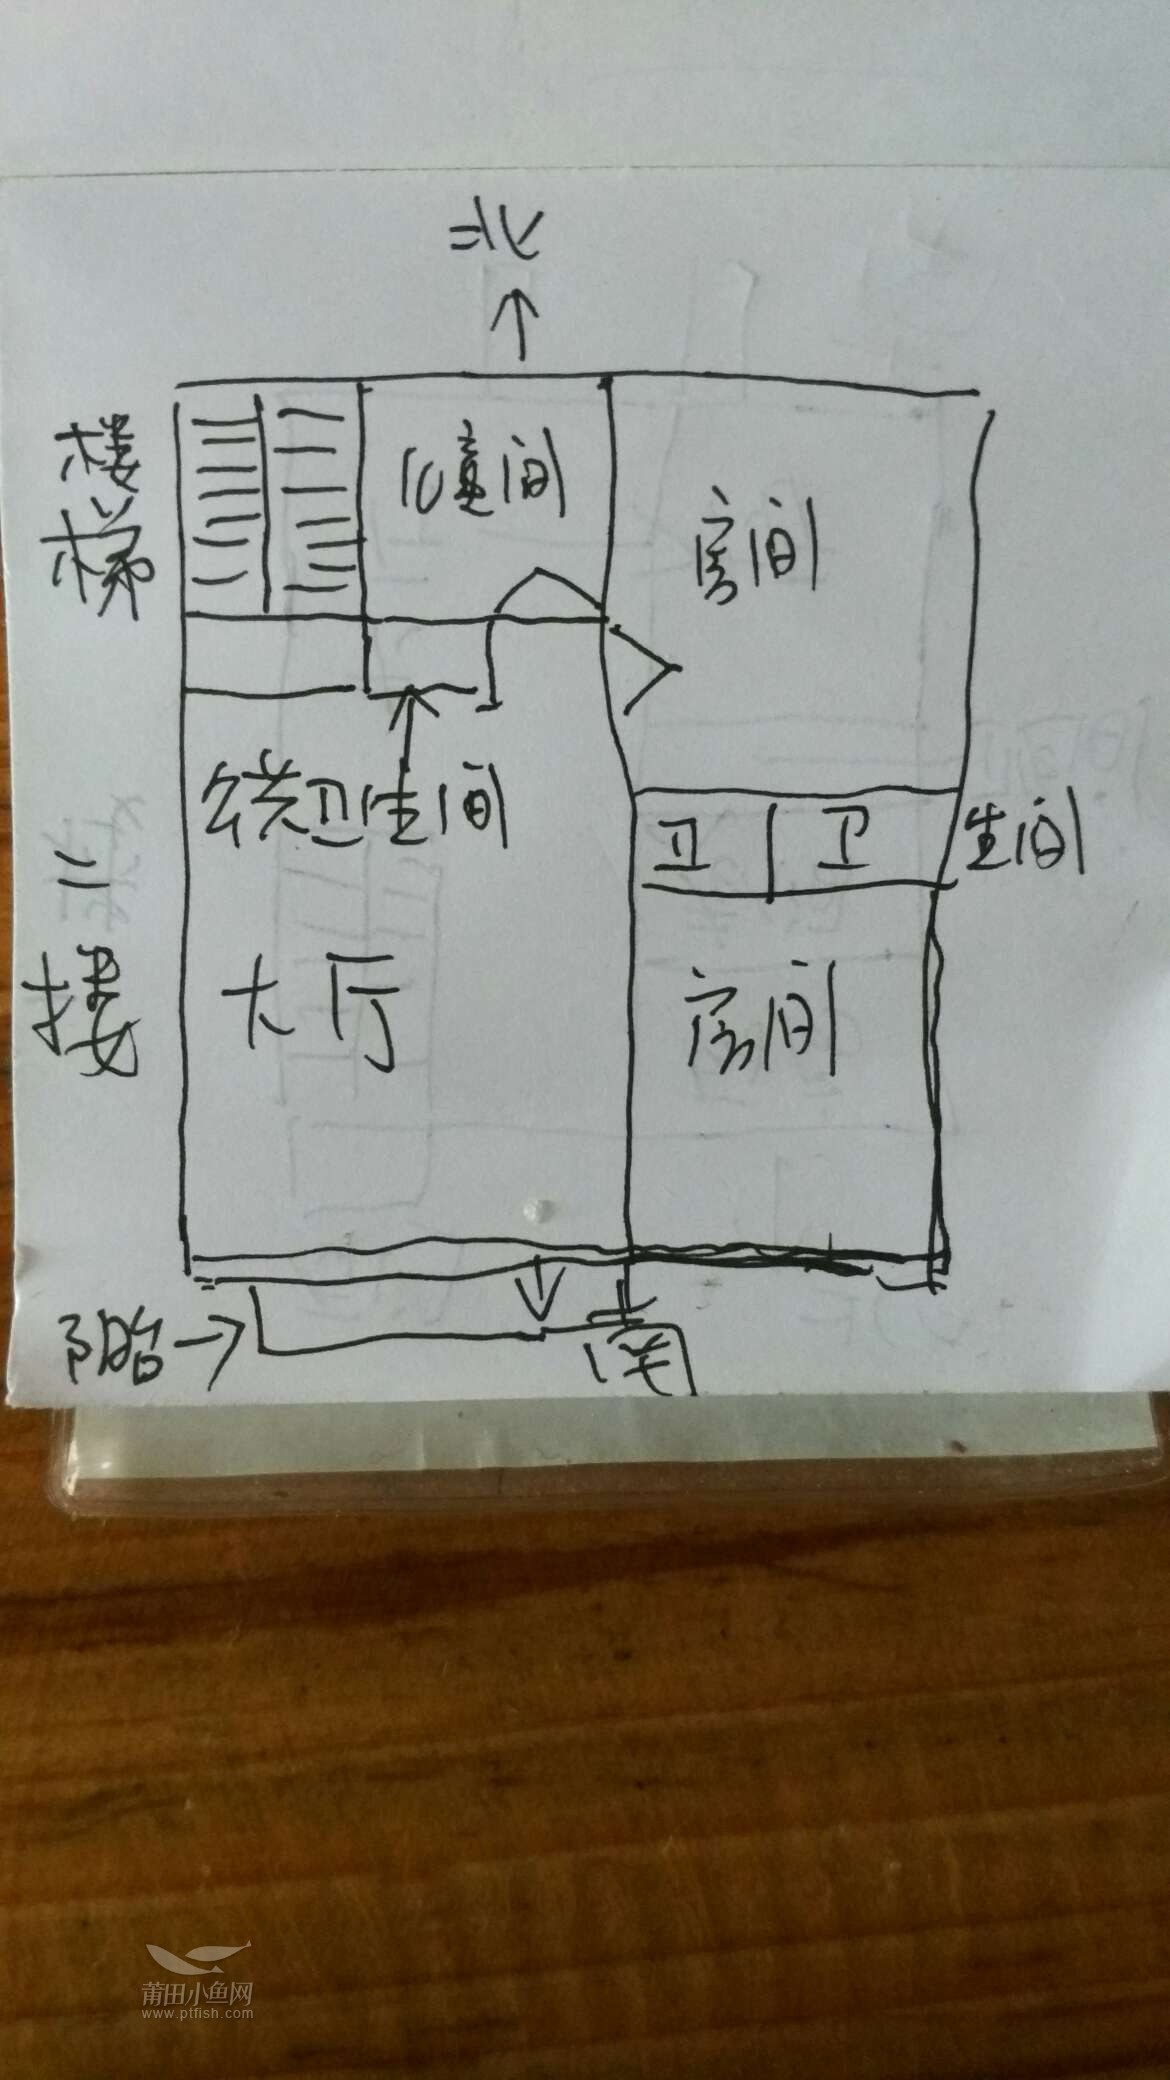 北
楼梯
儿童间
房间
公共卫生间
卫
卫
生间
二楼
大厅
房间
阳台
南
莆田小鱼网
www.ptfish.com